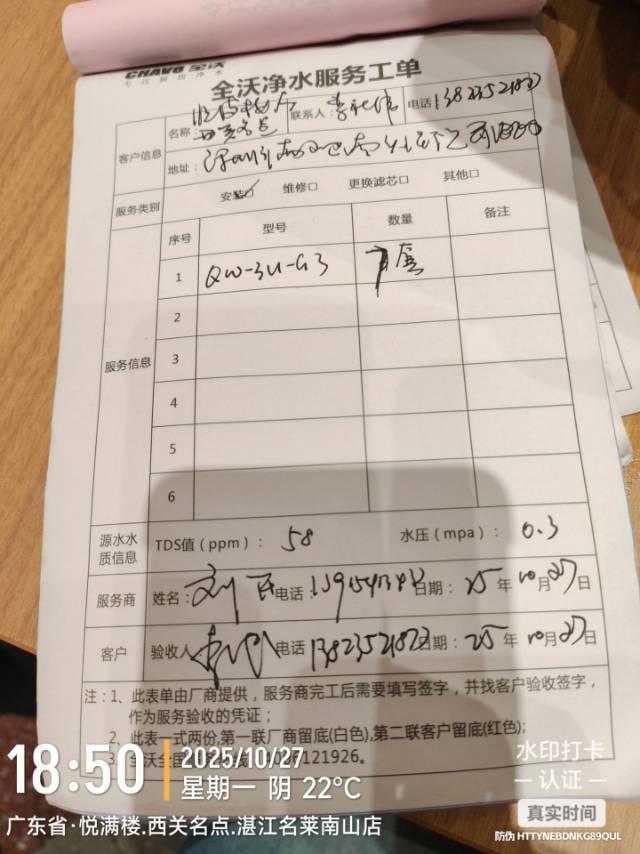 CHAVO 全沃
专注厨房净水
全沃净水服务工单
客户信息
名称:
西关名点
联系人:
电话 13823521823
地址:
服务类别 安装☑ 维修□ 更换滤芯□ 其他□
服务信息
序号 型号 数量 备注
1 QW-3U-G3 1套
2
3
4
5
6
源水水质信息 TDS值(ppm): 58 水压(mpa): 0.3
服务商 姓名: 刘 电话: 日期: 25年10月27日
客户 验收人 电话 13823521823 日期: 25年10月27日
注:1、此表单由厂商提供,服务商完工后需要填写签字,并找客户验收签字,
作为服务验收的凭证;
2、此表一式两份,第一联厂商留底(白色),第二联客户留底(红色);
全沃全国 121926。
18:50
2025/10/27
星期一 阴 22℃
广东省·悦满楼.西关名点.湛江名菜南山店
水印打卡
认证
真实时间
防伪 HTTYNEBDNKG89QUL